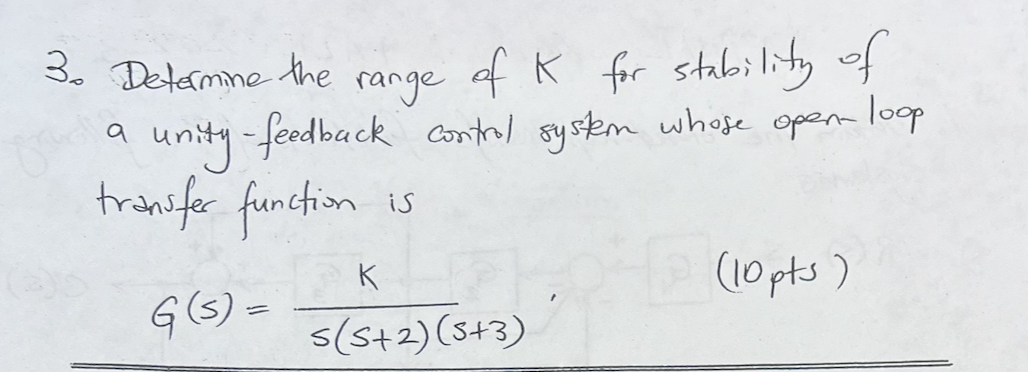 3. Determine the range of K for stability of
a unity-feedback control system whose open-loop
transfer function is
G(s) = K / s(s+2)(s+3) . (10 pts)